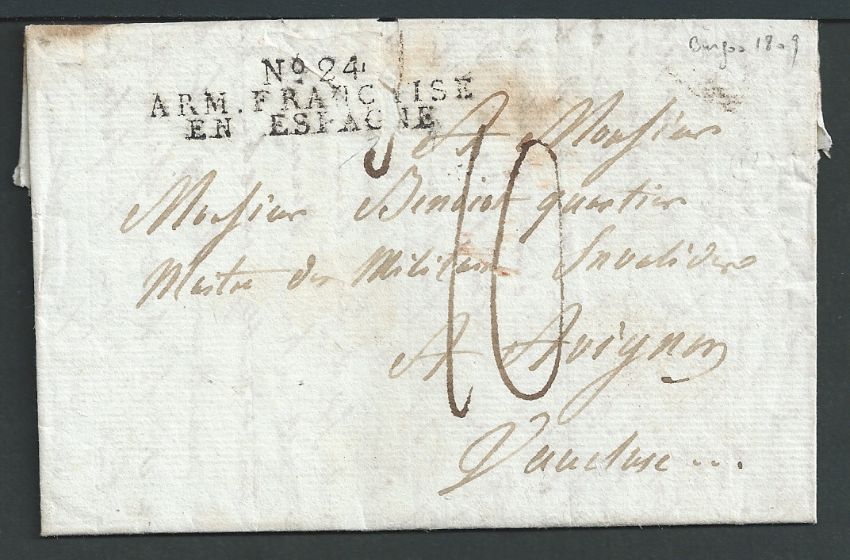 Burgos 1809
No 24
ARM. FRANCAISE
EN ESPAGNE
A Monsieur
Monsieur Benoit quartier
Maitre des Militaires Invalides
A Avignon
Vaucluse...
10